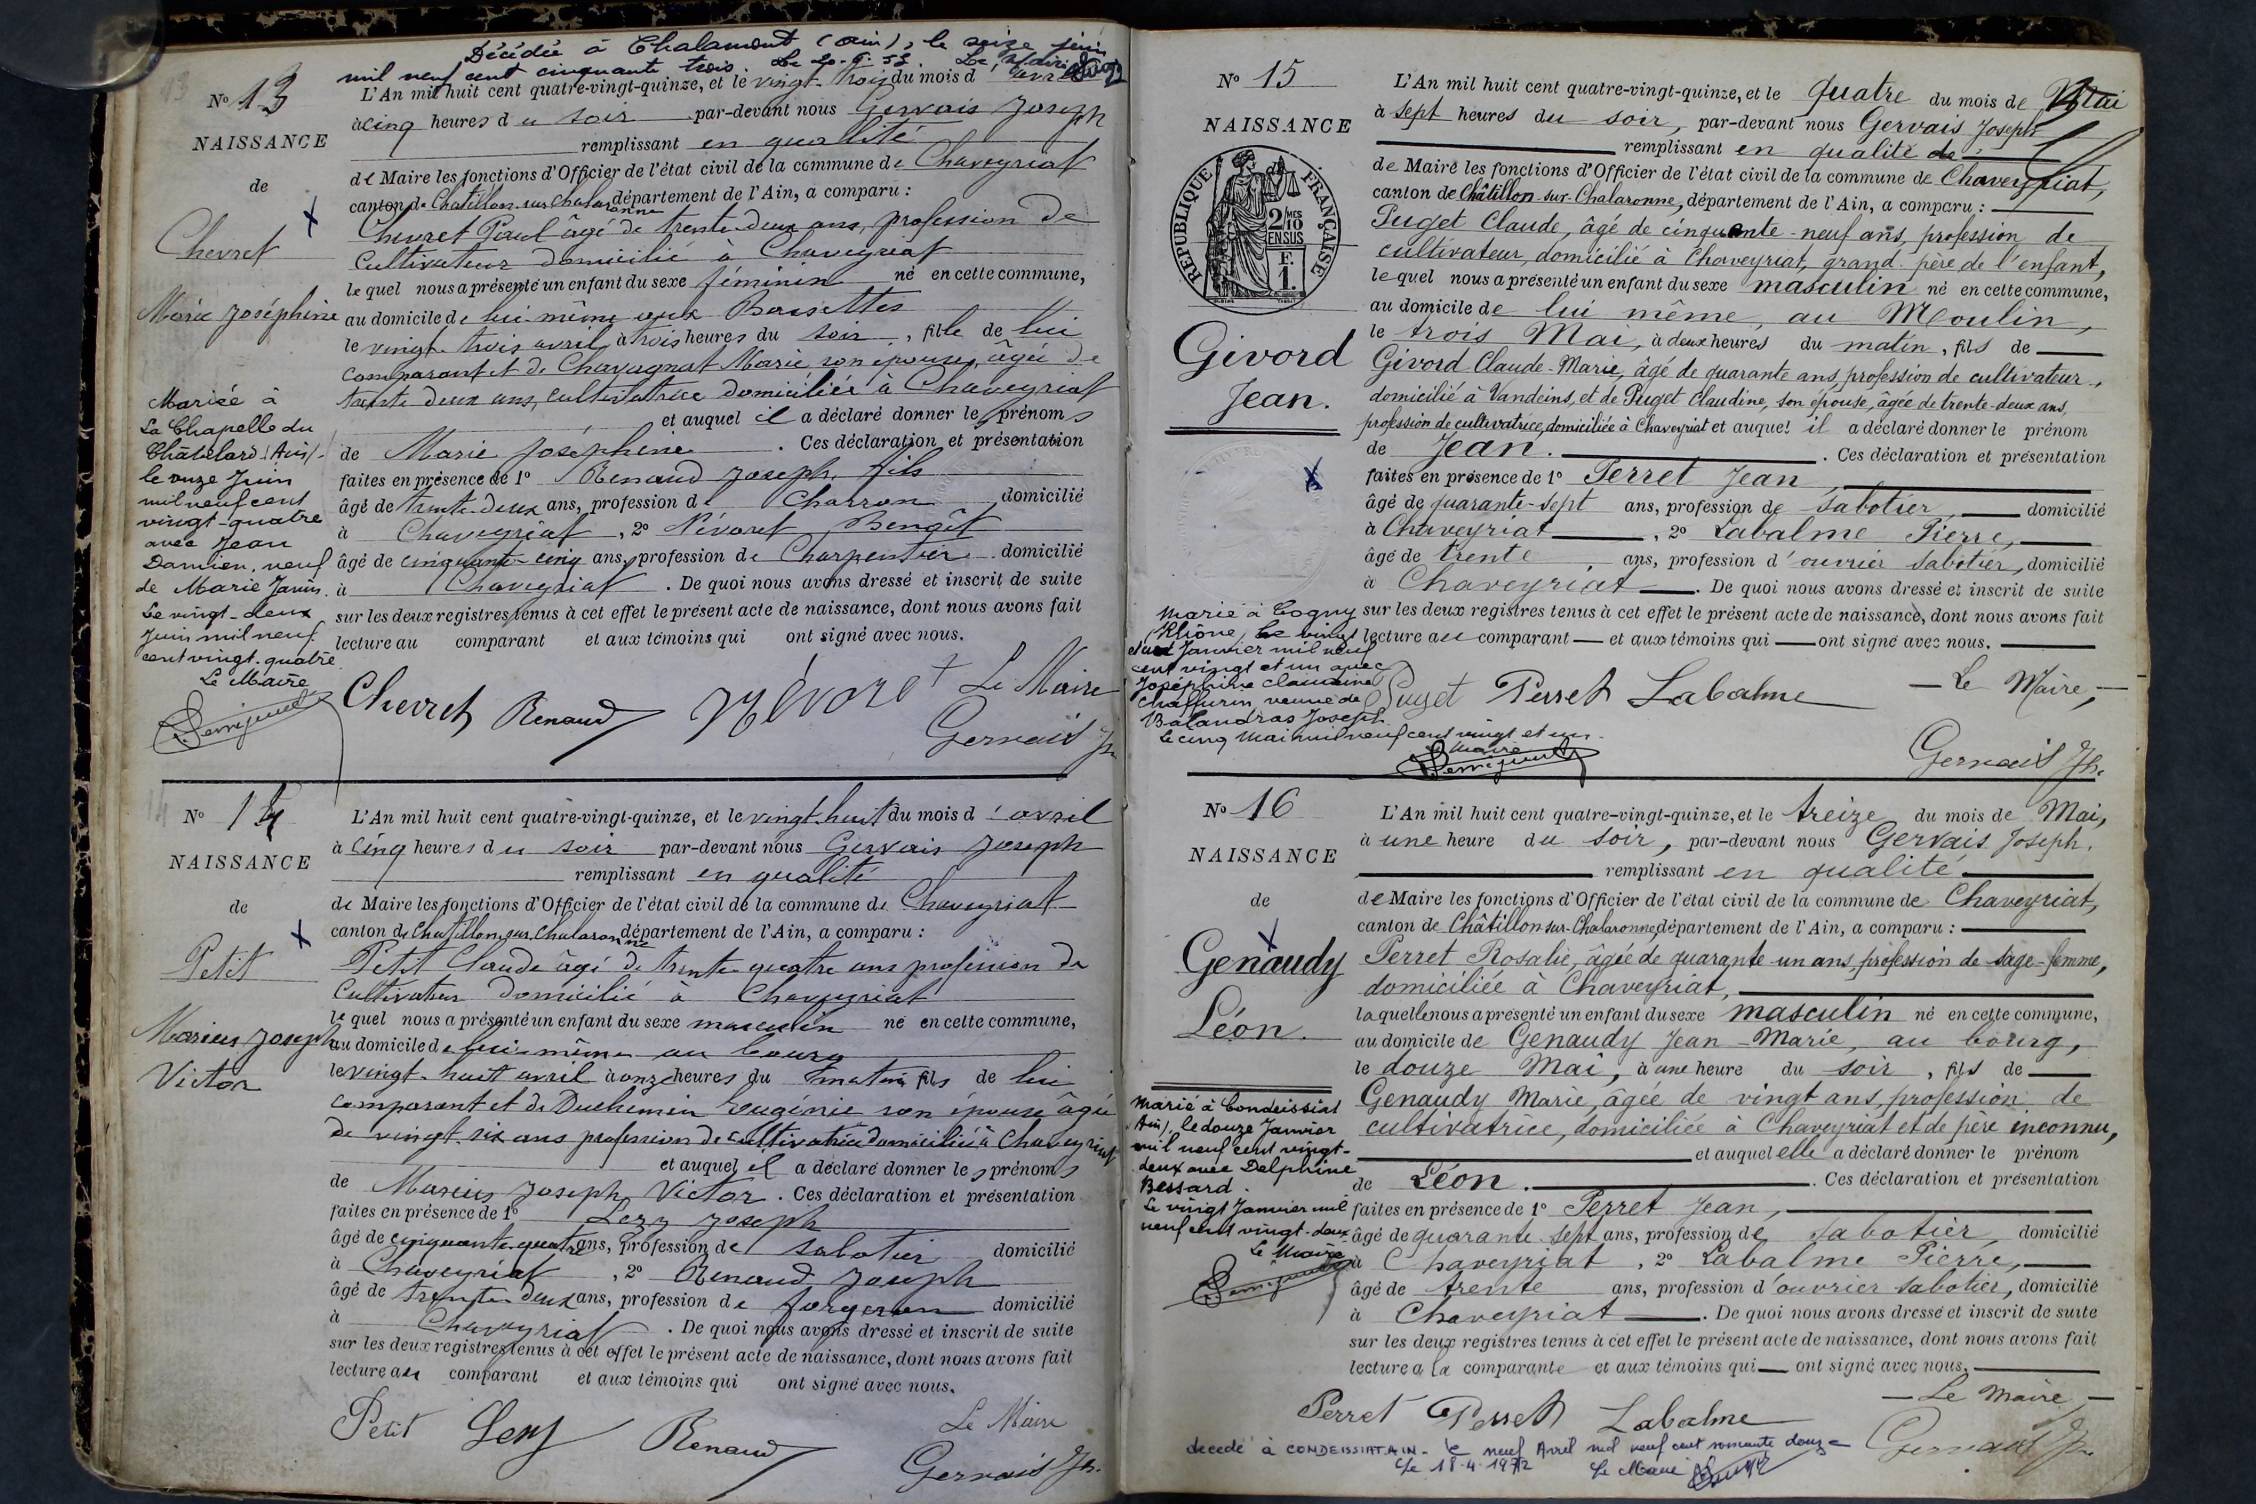 Décédée à Chalamont (Ain), le seize juin
mil neuf cent cinquante trois. Le Maire
No 13
NAISSANCE
de
Chevret
Marie Joséphine
L'An mil huit cent quatre-vingt-quinze, et le vingt-trois du mois d'avril
à cinq heures du soir par-devant nous Gervais Joseph
remplissant en qualité
de Maire les fonctions d'Officier de l'état civil de la commune de Chaveyriat
canton de Chatillon-sur-Chalaronne département de l'Ain, a comparu :
Chevret Paul âgé de trente-deux ans, profession de
Cultivateur domicilié à Chaveyriat
lequel nous a présenté un enfant du sexe féminin né en cette commune,
au domicile de lui-même aux Bassettes
le vingt-trois avril à trois heures du soir, fille de lui
comparant et de Chavagnat Marie son épouse, âgée de
trente deux ans, cultivatrice domiciliée à Chaveyriat
et auquel il a déclaré donner les prénoms
de Marie Joséphine . Ces déclaration et présentation
faites en présence de 1o Renaud Joseph, fils
âgé de trente-deux ans, profession de Charron domicilié
à Chaveyriat , 2o Névoret Benoît
âgé de cinquante-cinq ans, profession de Charpentier domicilié
à Chaveyriat . De quoi nous avons dressé et inscrit de suite
sur les deux registres tenus à cet effet le présent acte de naissance, dont nous avons fait
lecture au comparant et aux témoins qui ont signé avec nous.
Mariée à
La Chapelle du
Châtelard (Ain)
le onze Juin
mil neuf cent
vingt-quatre
avec Jean
Damien, veuf
de Marie Janin.
Le vingt-deux
Juin mil neuf
cent vingt-quatre
Le Maire
Chevret Renaud Névoret Le Maire
Gervais Jh
No 14
NAISSANCE
de
Petit
Marius Joseph
Victor
L'An mil huit cent quatre-vingt-quinze, et le vingt-huit du mois d'avril
à cinq heures du soir par-devant nous Gervais Joseph
remplissant en qualité
de Maire les fonctions d'Officier de l'état civil de la commune de Chaveyriat
canton de Chatillon-sur-Chalaronne département de l'Ain, a comparu :
Petit Claude âgé de trente-quatre ans profession de
Cultivateur domicilié à Chaveyriat
lequel nous a présenté un enfant du sexe masculin né en cette commune,
au domicile de lui-même au bourg
le vingt-huit avril à onze heures du matin fils de lui
comparant et de Duchemin Eugénie son épouse âgée
de vingt-six ans profession de cultivatrice domiciliée à Chaveyriat
et auquel il a déclaré donner les prénoms
de Marius Joseph Victor . Ces déclaration et présentation
faites en présence de 1o Lezy Joseph
âgé de cinquante-quatre ans, profession de sabotier domicilié
à Chaveyriat , 2o Renaud Joseph
âgé de trente-deux ans, profession de forgeron domicilié
à Chaveyriat . De quoi nous avons dressé et inscrit de suite
sur les deux registres tenus à cet effet le présent acte de naissance, dont nous avons fait
lecture au comparant et aux témoins qui ont signé avec nous.
Petit Lezy Renaud Le Maire
Gervais Jh.
No 15
NAISSANCE
RÉPUBLIQUE FRANÇAISE
2 MES
10
EN SUS
F.
1.
Givord
Jean.
L'An mil huit cent quatre-vingt-quinze, et le quatre du mois de Mai
à sept heures du soir, par-devant nous Gervais Joseph
remplissant en qualité de
de Maire les fonctions d'Officier de l'état civil de la commune de Chaveyriat,
canton de Châtillon-sur-Chalaronne, département de l'Ain, a comparu :
Puget Claude, âgé de cinquante-neuf ans, profession de
cultivateur, domicilié à Chaveyriat, grand-père de l'enfant,
lequel nous a présenté un enfant du sexe masculin né en cette commune,
au domicile de lui même, au Moulin,
le trois Mai, à deux heures du matin, fils de
Givord Claude-Marie, âgé de quarante ans, profession de cultivateur,
domicilié à Vandeins, et de Puget Claudine, son épouse, âgée de trente-deux ans,
profession de cultivatrice, domiciliée à Chaveyriat et auquel il a déclaré donner le prénom
de Jean. . Ces déclaration et présentation
faites en présence de 1o Perret Jean,
âgé de quarante-sept ans, profession de sabotier, domicilié
à Chaveyriat , 2o Labalme Pierre,
âgé de trente ans, profession d'ouvrier sabotier, domicilié
à Chaveyriat . De quoi nous avons dressé et inscrit de suite
sur les deux registres tenus à cet effet le présent acte de naissance, dont nous avons fait
lecture au comparant et aux témoins qui ont signé avec nous.
Marié à Cogny
(Rhône) le vingt
et un Janvier mil neuf
cent vingt et un avec
Joséphine Claudine
Chaffurin, veuve de
Balandras Joseph
le cinq Mai mil neuf cent vingt et un.
Le Maire
Puget Perret Labalme Le Maire,
Gervais Jh.
No 16
NAISSANCE
de
Genaudy
Léon.
L'An mil huit cent quatre-vingt-quinze, et le treize du mois de Mai,
à une heure du soir, par-devant nous Gervais Joseph.
remplissant en qualité
de Maire les fonctions d'Officier de l'état civil de la commune de Chaveyriat,
canton de Châtillon-sur-Chalaronne, département de l'Ain, a comparu :
Perret Rosalie, âgée de quarante un ans, profession de sage-femme,
domiciliée à Chaveyriat,
laquelle nous a présenté un enfant du sexe masculin né en cette commune,
au domicile de Genaudy Jean-Marie, au bourg,
le douze Mai, à une heure du soir, fils de
Genaudy Marie, âgée de vingt ans, profession de
cultivatrice, domiciliée à Chaveyriat et de père inconnu,
et auquel elle a déclaré donner le prénom
de Léon. . Ces déclaration et présentation
faites en présence de 1o Perret Jean,
âgé de quarante-sept ans, profession de sabotier, domicilié
à Chaveyriat , 2o Labalme Pierre,
âgé de trente ans, profession d'ouvrier sabotier, domicilié
à Chaveyriat . De quoi nous avons dressé et inscrit de suite
sur les deux registres tenus à cet effet le présent acte de naissance, dont nous avons fait
lecture a la comparante et aux témoins qui ont signé avec nous.
Marié à Condeissiat
(Ain), le douze Janvier
mil neuf cent vingt-
deux avec Delphine
Bessard.
Le vingt Janvier mil
neuf cent vingt-deux
Le Maire
Perret Perret Labalme Le Maire,
Gervais Jh.
decede à CONDEISSIAT. AIN - le neuf Avril mil neuf cent soixante douze
Le 18-4-1972 Le Maire